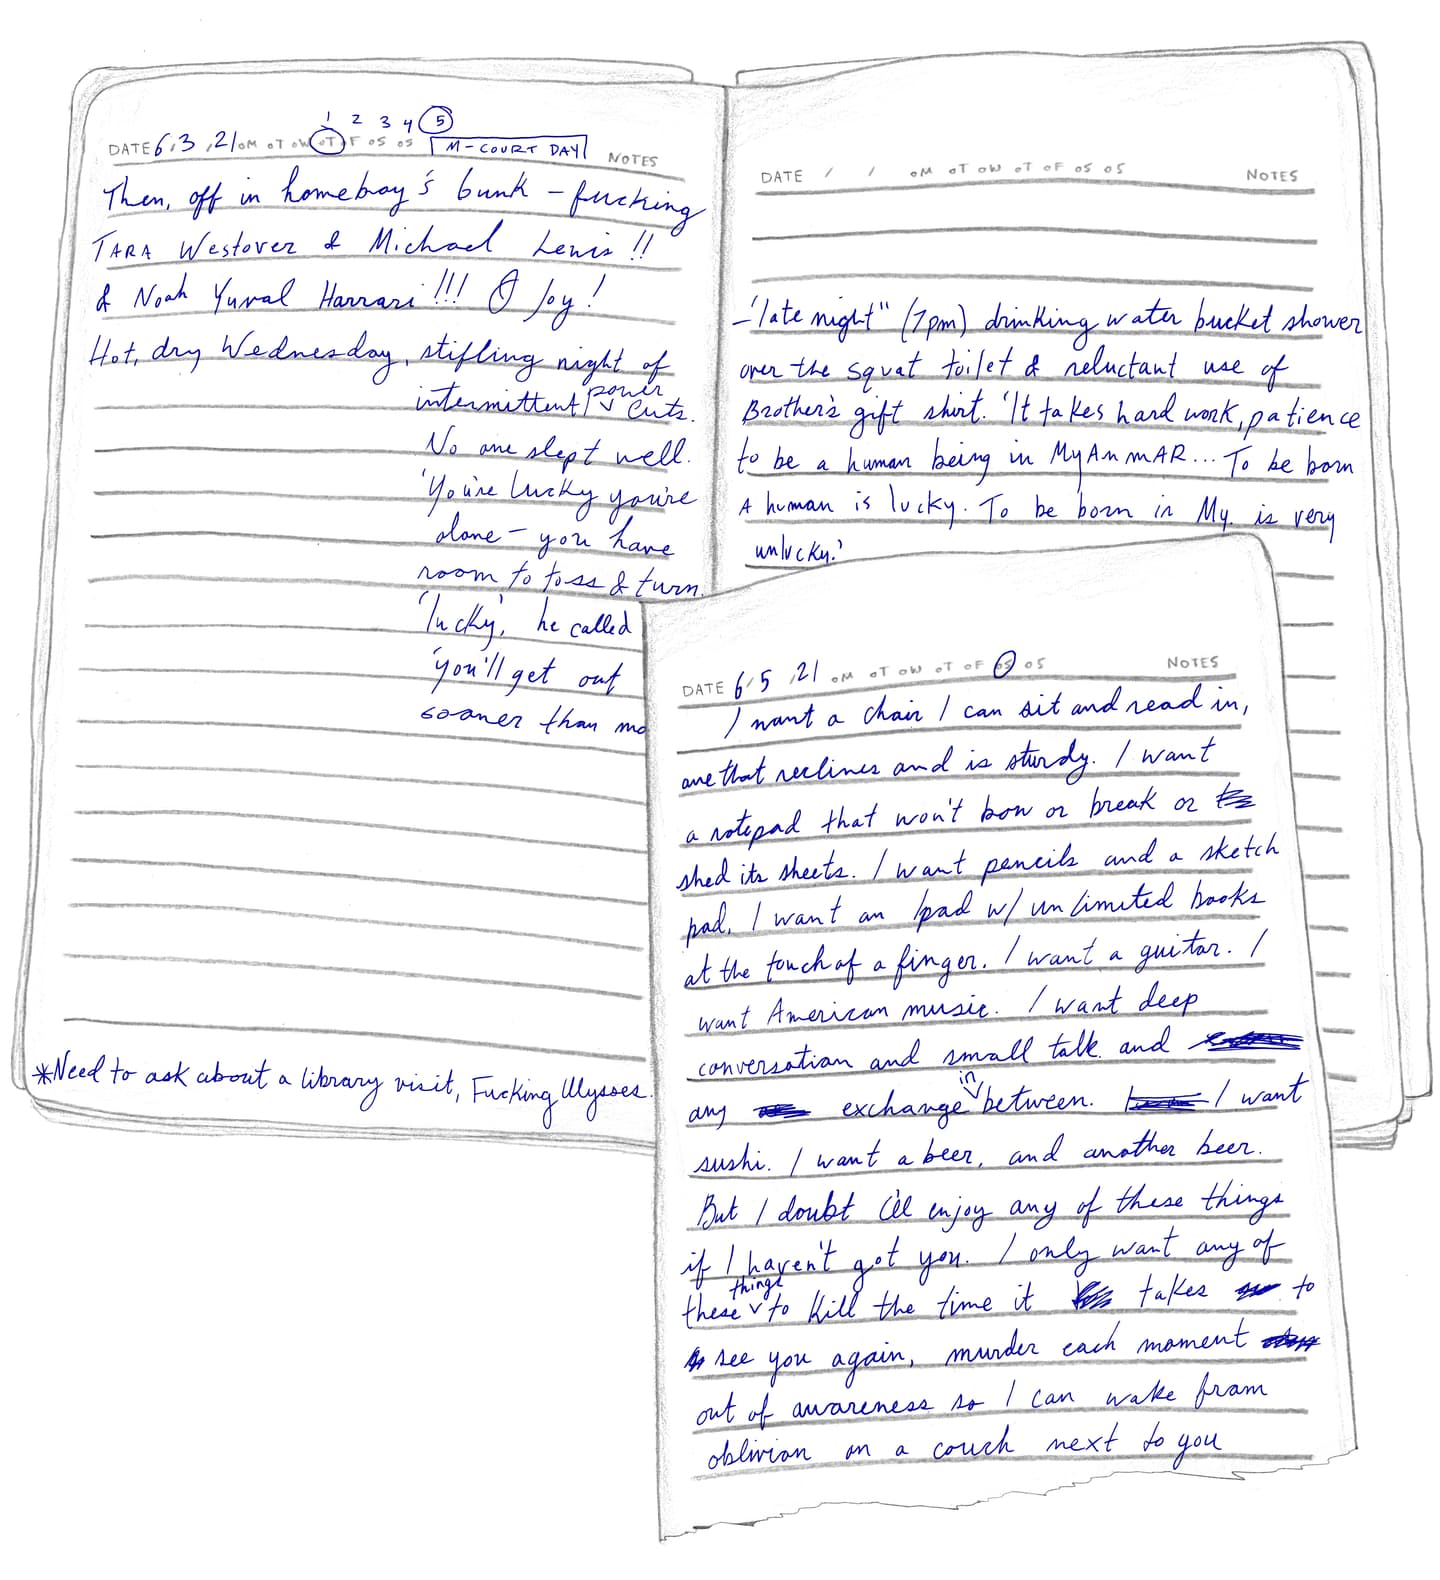 1 2 3 4 5
DATE 6/3/21 oM oT oW oT oF oS oS M-COURT DAY NOTES
Then, off in homeboy's bunk – fucking
TARA Westover & Michael Lewis!!
& Noah Yuval Harrari!!! O Joy!
Hot, dry Wednesday, stifling night of
intermittent power cuts.
No one slept well.
'You're lucky you're
alone – you have
room to toss & turn.
'lucky', he called
'you'll get out
sooner than mo
*Need to ask about a library visit, Fucking Ulysses.
DATE / / oM oT oW oT oF oS oS NOTES
– "late night" (7pm) drinking water bucket shower
over the squat toilet & reluctant use of
Brother's gift shirt. 'It takes hard work, patience
to be a human being in MyAnmAR... To be born
A human is lucky. To be born in My. is very
unlucky.'
DATE 6/5/21 oM oT oW oT oF oS oS NOTES
I want a chair I can sit and read in,
one that reclines and is sturdy. I want
a notepad that won't bow or break or
shed its sheets. I want pencils and a sketch
pad. I want an Ipad w/ unlimited books
at the touch of a finger. I want a guitar. I
want American music. I want deep
conversation and small talk and
any exchange in between. I want
sushi. I want a beer, and another beer.
But I doubt I'll enjoy any of these things
if I haven't got you. I only want any of
these things to kill the time it takes to
see you again, murder each moment
out of awareness so I can wake from
oblivion on a couch next to you